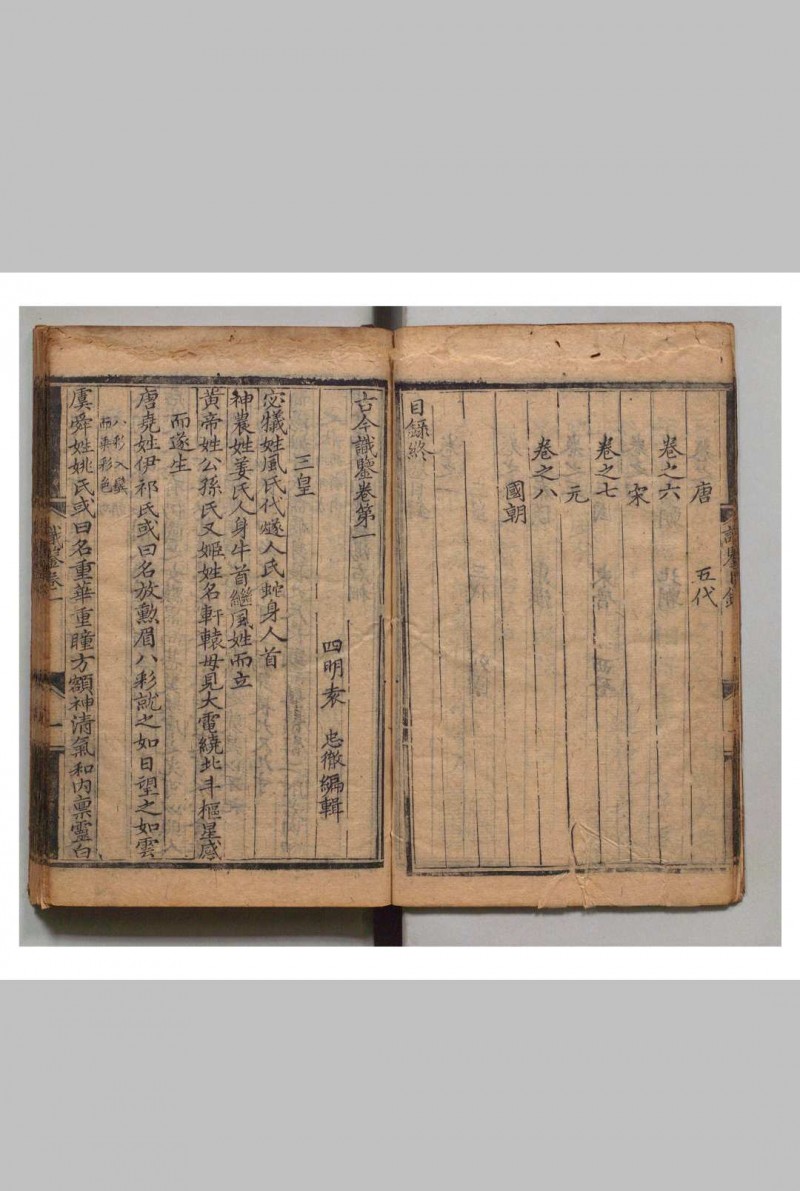 唐　五代
卷之六
宋
卷之七
元
卷之八
國朝
目録終
古今識鑒卷第一
四明袁　忠徹編輯
三皇
宓犧姓風氏代燧人氏蛇身人首
神農姓姜氏人身牛首繼風姓而立
黃帝姓公孫氏又姬姓名軒轅母見大電繞北斗樞星感
而遂生
唐堯姓伊祁氏或曰名放勳眉八彩就之如日望之如雲
八彩入鬢
色
虞舜姓姚氏或曰名重華重瞳方額神清氣和內稟靈白
識鑒卷一